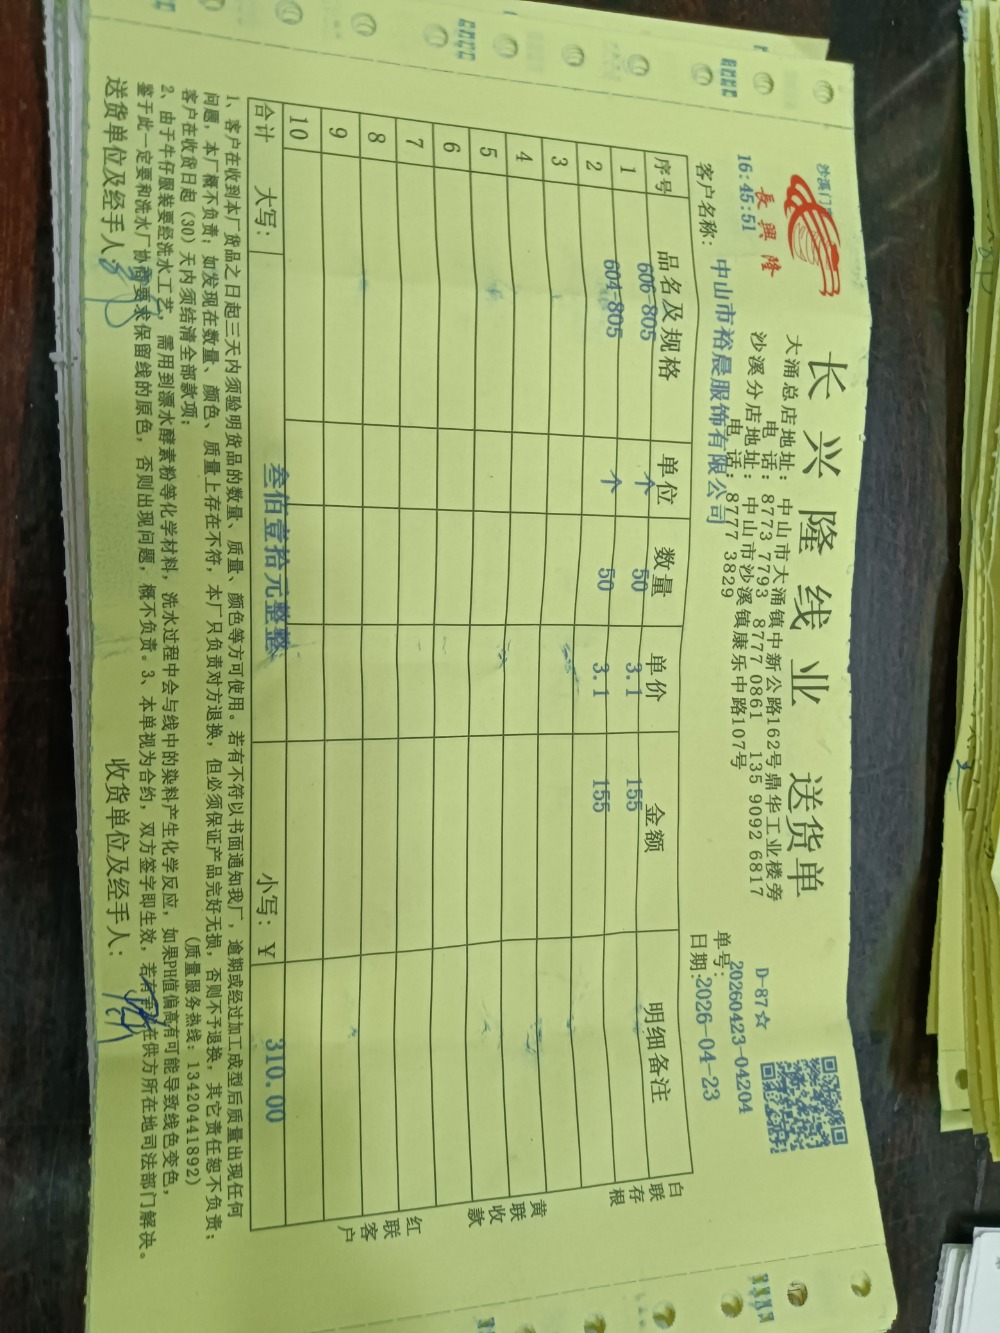 长兴隆线业 送货单
長興隆
16:45:51
大涌总店地址：中山市大涌镇中新公路162号鼎华工业楼旁
电 话：8773 7793 8777 0861 135 9092 6817
沙溪分店地址：中山市沙溪镇康乐中路107号
电 话：8777 3829
D-87☆
单号：20260423-04204
客户名称：中山市裕晨服饰有限公司
日期：2026-04-23
序号 品名及规格 单位 数量 单价 金额 明细备注
1 606-805 个 50 3.1 155
2 604-805 个 50 3.1 155
3
4
5
6
7
8
9
10
合计 大写：叁佰壹拾元整整 小写：￥ 310.00
白联存根
黄联收款
红联客户
1、客户在收到本厂货品之日起三天内须验明货品的数量、质量、颜色等方可使用。若有不符以书面通知我厂，逾期或经过加工成型后质量出现任何
问题，本厂概不负责；如发现在数量、颜色、质量上存在不符，本厂只负责对方退换，但必须保证产品完好无损，否则不予退换，其它责任恕不负责；
客户在收货日起（30）天内须结清全部款项； （质量服务热线：13420441892）
2、由于牛仔服装要经洗水工艺，需用到漂水酵素粉等化学材料，洗水过程中会与线中的染料产生化学反应，如果PH值偏高有可能导致线色变色，
鉴于此一定要和洗水厂协商要求保留线的原色，否则出现问题，概不负责。3、本单视为合约，双方签字即生效，若有 在供方所在地司法部门解决。
送货单位及经手人： 收货单位及经手人：